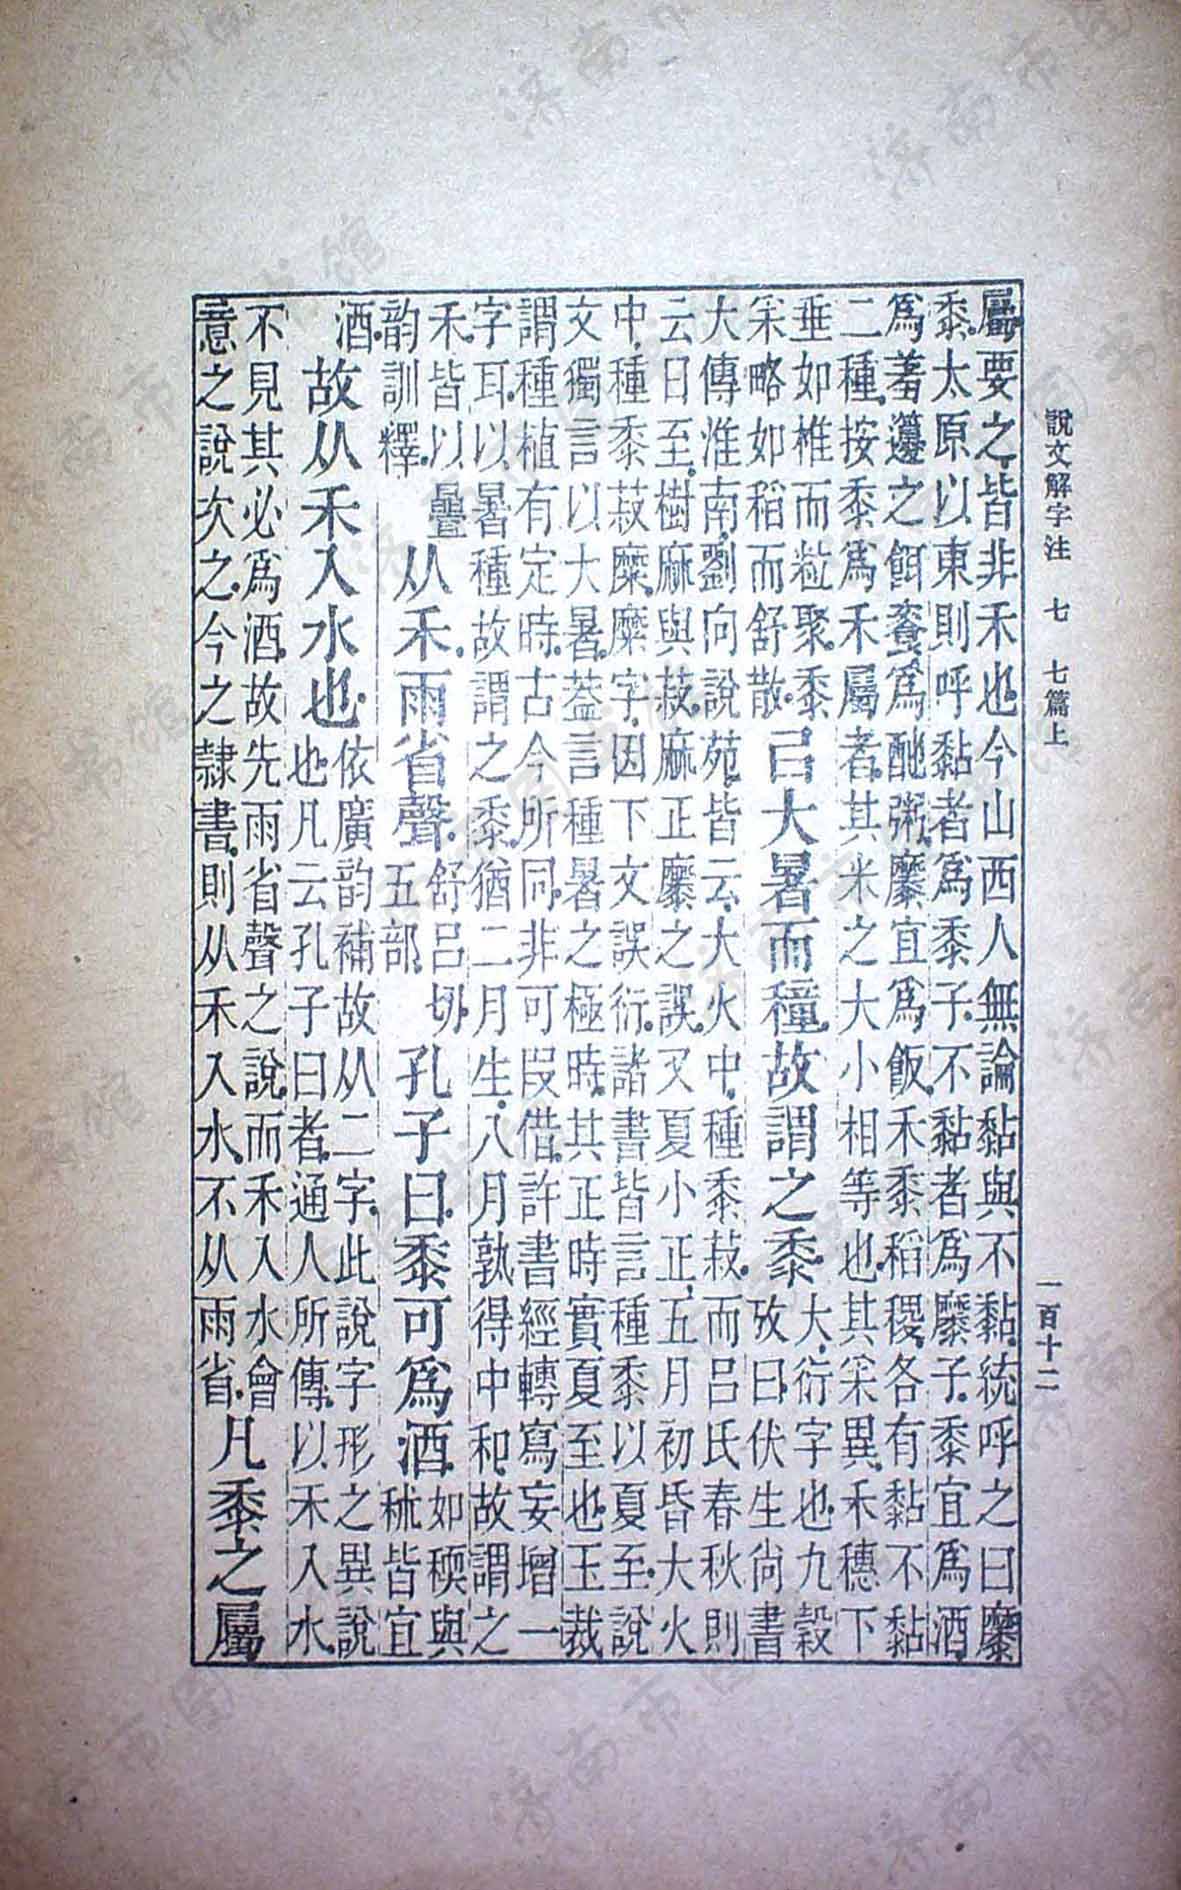 說文解字注 七 七篇上
一百十二
屬要之皆非禾也今山西人無論黏與不黏統呼之曰穈
黍太原以東則呼黏者爲黍子不黏者爲穈子黍宜爲酒
爲羞籩之餌餈爲酏粥穈宜爲飯禾黍稻稷各有黏不黏
二種按黍爲禾屬者其米之大小相等也其采異禾穗下
垂如椎而粒聚黍
采略如稻而舒散
㠯大暑而穜故謂之黍
大衍字也九穀
攷曰伏生尚書
大傳淮南劉向說苑皆云大火中種黍菽而呂氏春秋則
云日至樹麻與菽麻正穈之誤又夏小正五月初昏大火
中種黍菽穈穈字因下文誤衍諸書皆言種黍以夏至說
文獨言以大暑葢言種暑之極時其正時實夏至也玉裁
謂種植有定時古今所同非可叚借許書經轉寫妄增一
字耳以暑種故謂之黍猶二月生八月孰得中和故謂之
禾皆以曡
韵訓釋
从禾雨省聲
舒呂切
五部
孔子曰黍可爲酒
如稬與
秫皆宜
酒
故从禾入水也
依廣韵補故从二字此說字形之異說
也凡云孔子曰者通人所傳以禾入水
不見其必爲酒故先雨省聲之說而禾入水會
意之說次之今之隷書則从禾入水不从雨省
凡黍之屬